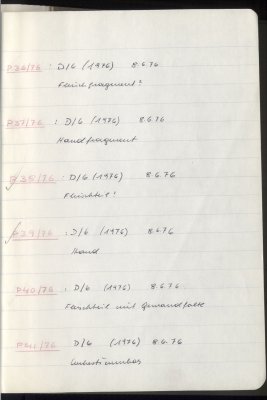 P36/76 : D/6 (1976) 8.6.76
Fleischfragment?
P37/76 : D/6 (1976) 8.6.76
Handfragment
P38/76 : D/6 (1976) 8.6.76
P39/76 : D/6 (1976) 8.6.76
Hand
P40/76 : D/6 (1976) 8.6.76
mit Gewandfalte
P41/76 D/6 (1976) 8.6.76